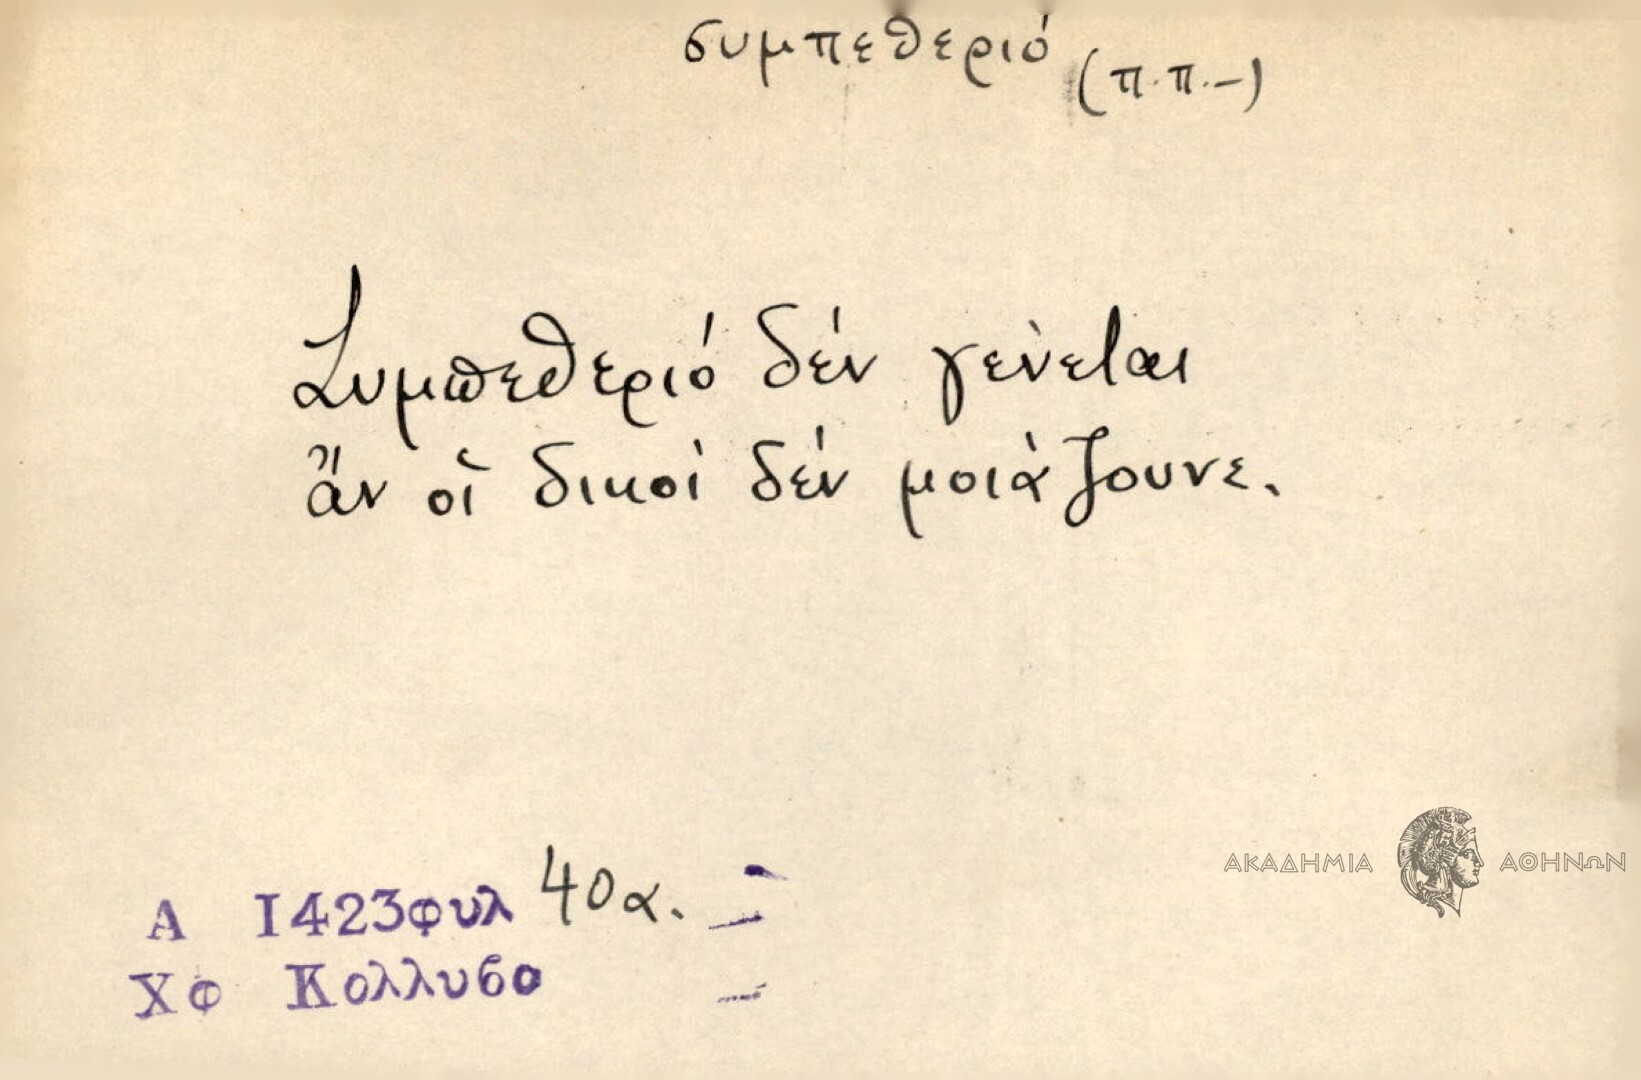 συμπεθεριό (π.π.-)
Συμπεθεριό δέν γένεται
ἄν οἱ δικοί δέν μοιάζουνε.
Α 1423φυλ 40α.
Χφ Κολλυβο
ΑΚΑΔΗΜΙΑ ΑΘΗΝΩΝ